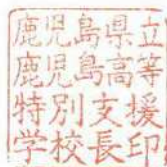 鹿児島県立
鹿児島高等
特別支援
学校長印